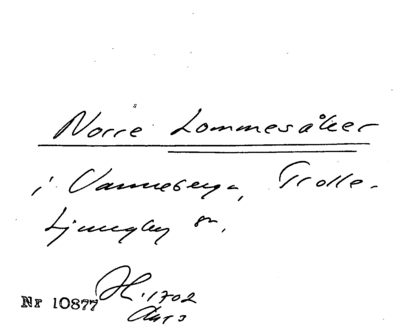 Norre Lommesåker
i Vanneberga, Trolle-
Ljungby sn.
Nr 10877 H. 1702